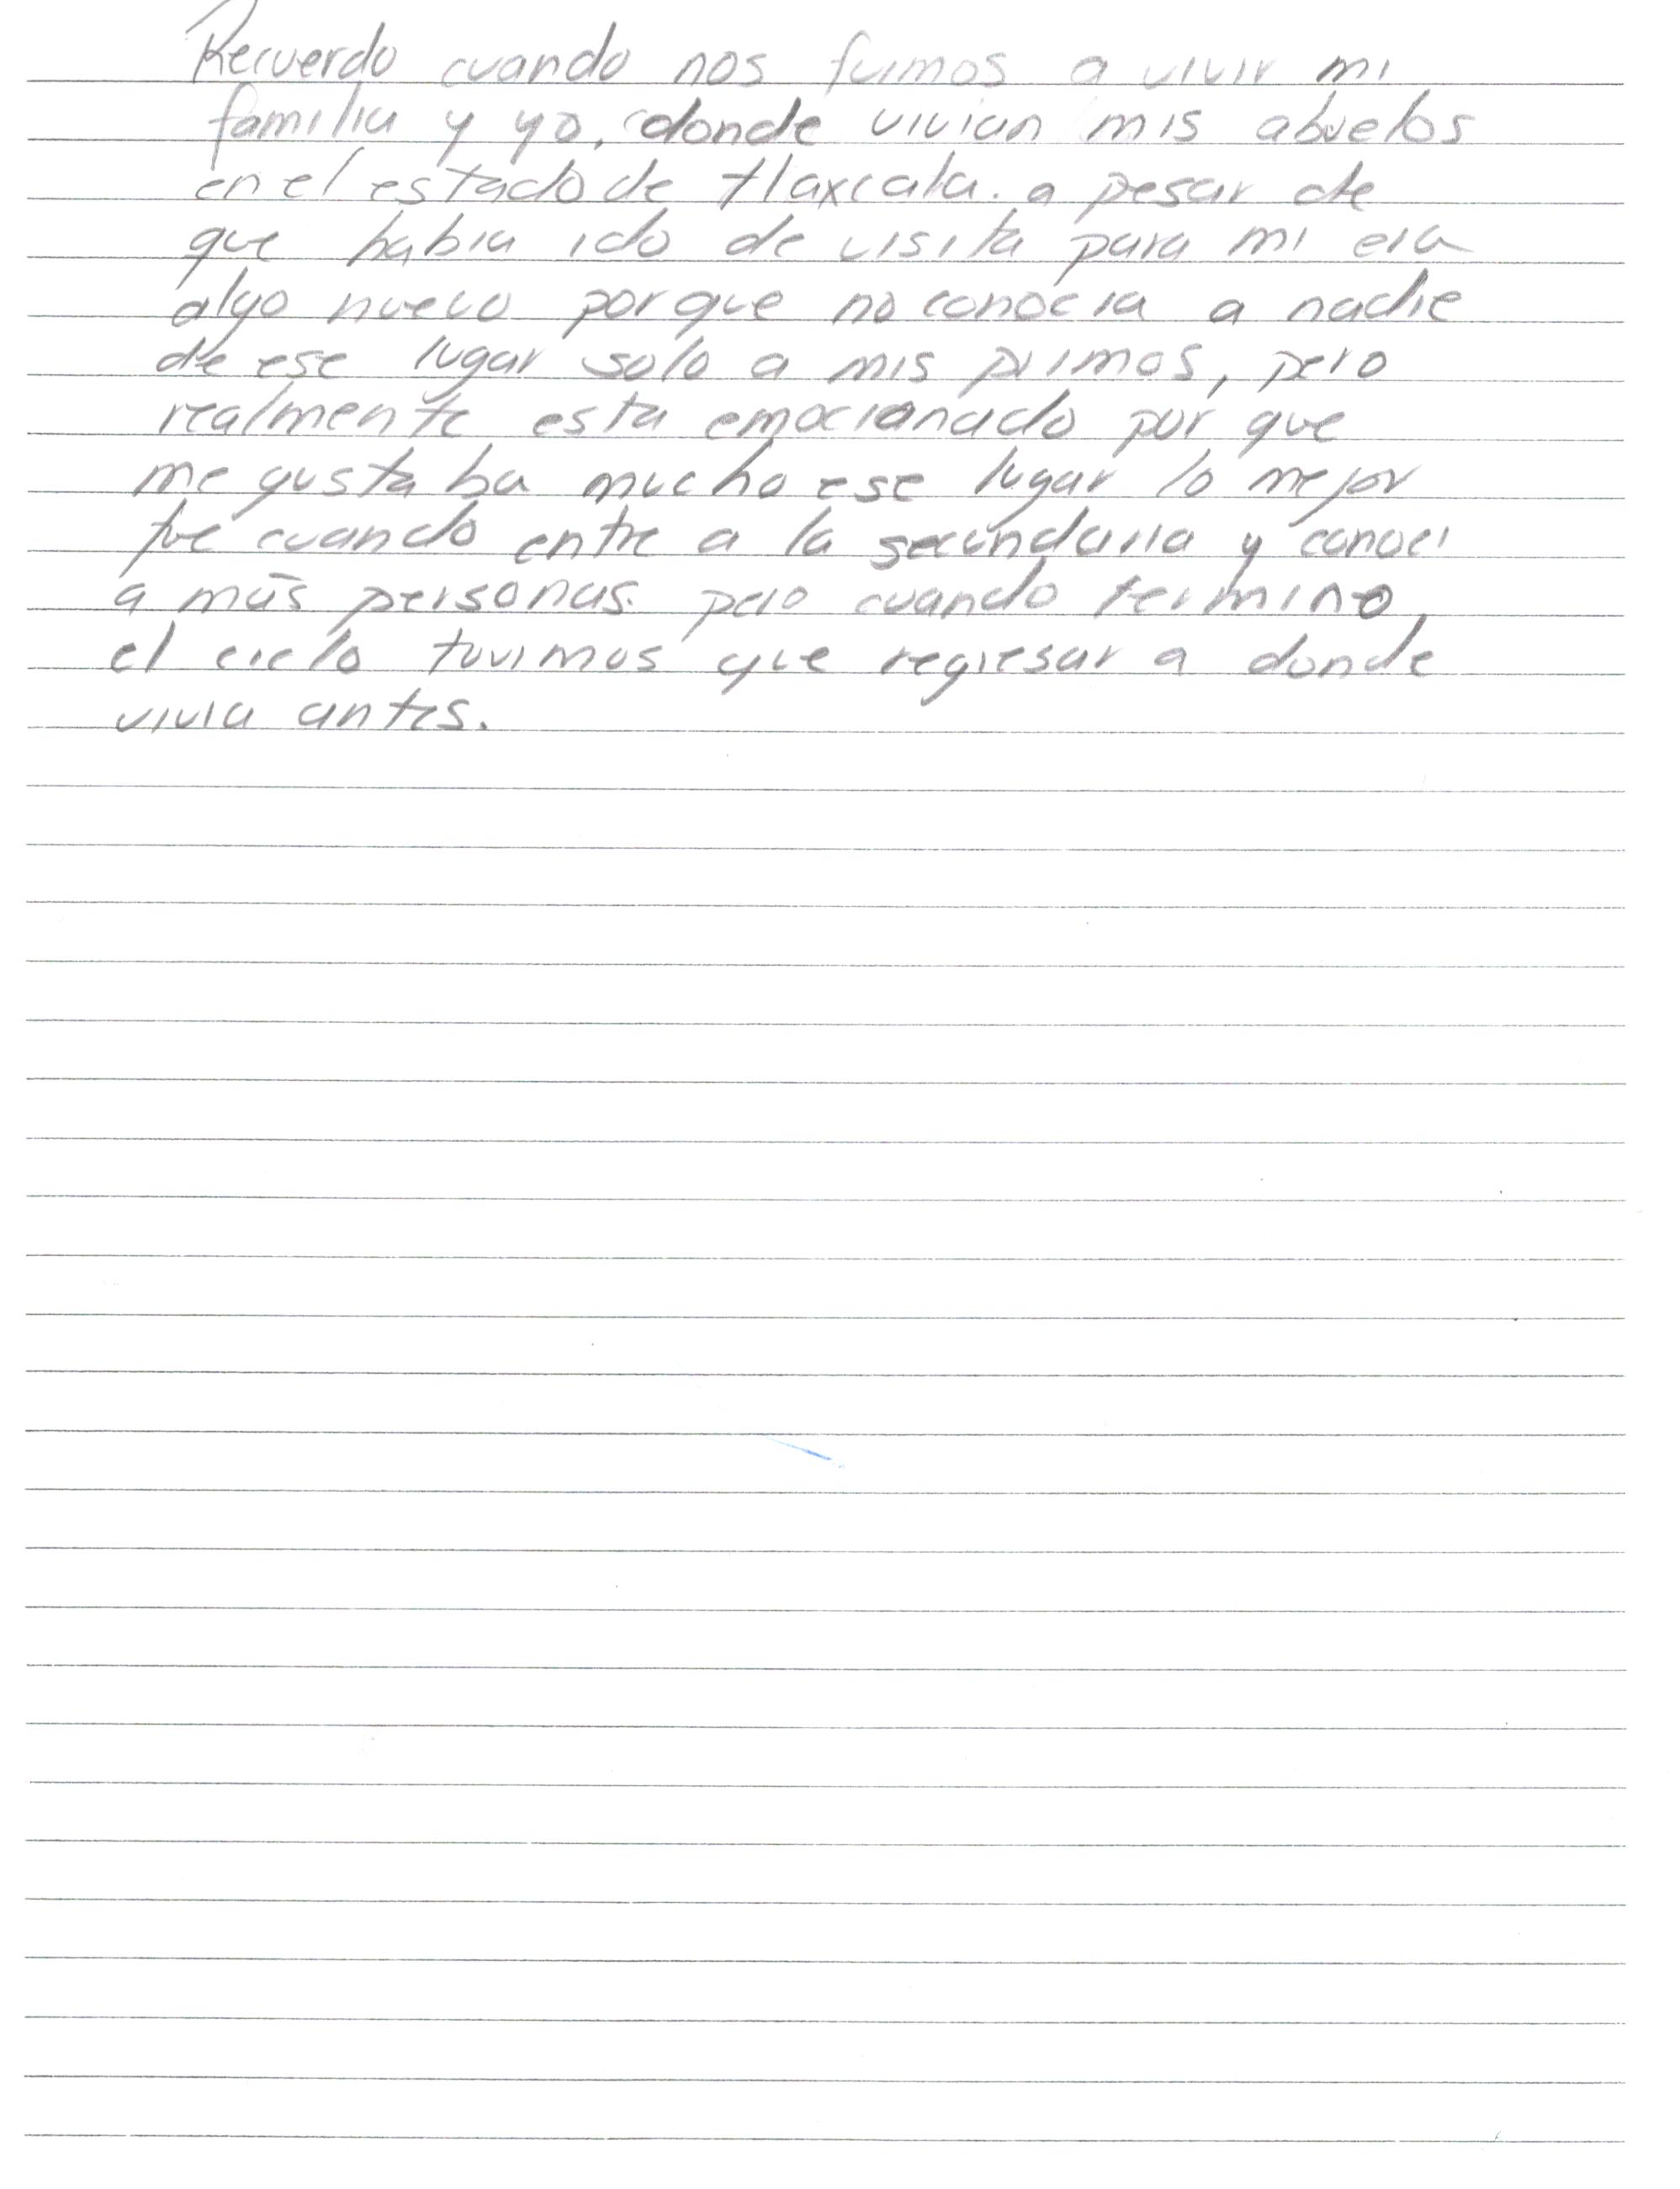 Recuerdo cuando nos fuimos a vivir mi
familia y yo, donde vivian mis abuelos
en el estado de tlaxcala. a pesar de
que habia ido de visita para mi era
algo nuevo porque no conocia a nadie
de ese lugar solo a mis primos, pero
realmente esta emocionado por que
me gustaba mucho ese lugar lo mejor
fue cuando entre a la secundaria y conoci
a más personas. pero cuando termino
el ciclo tuvimos que regresar a donde
vivia antes.